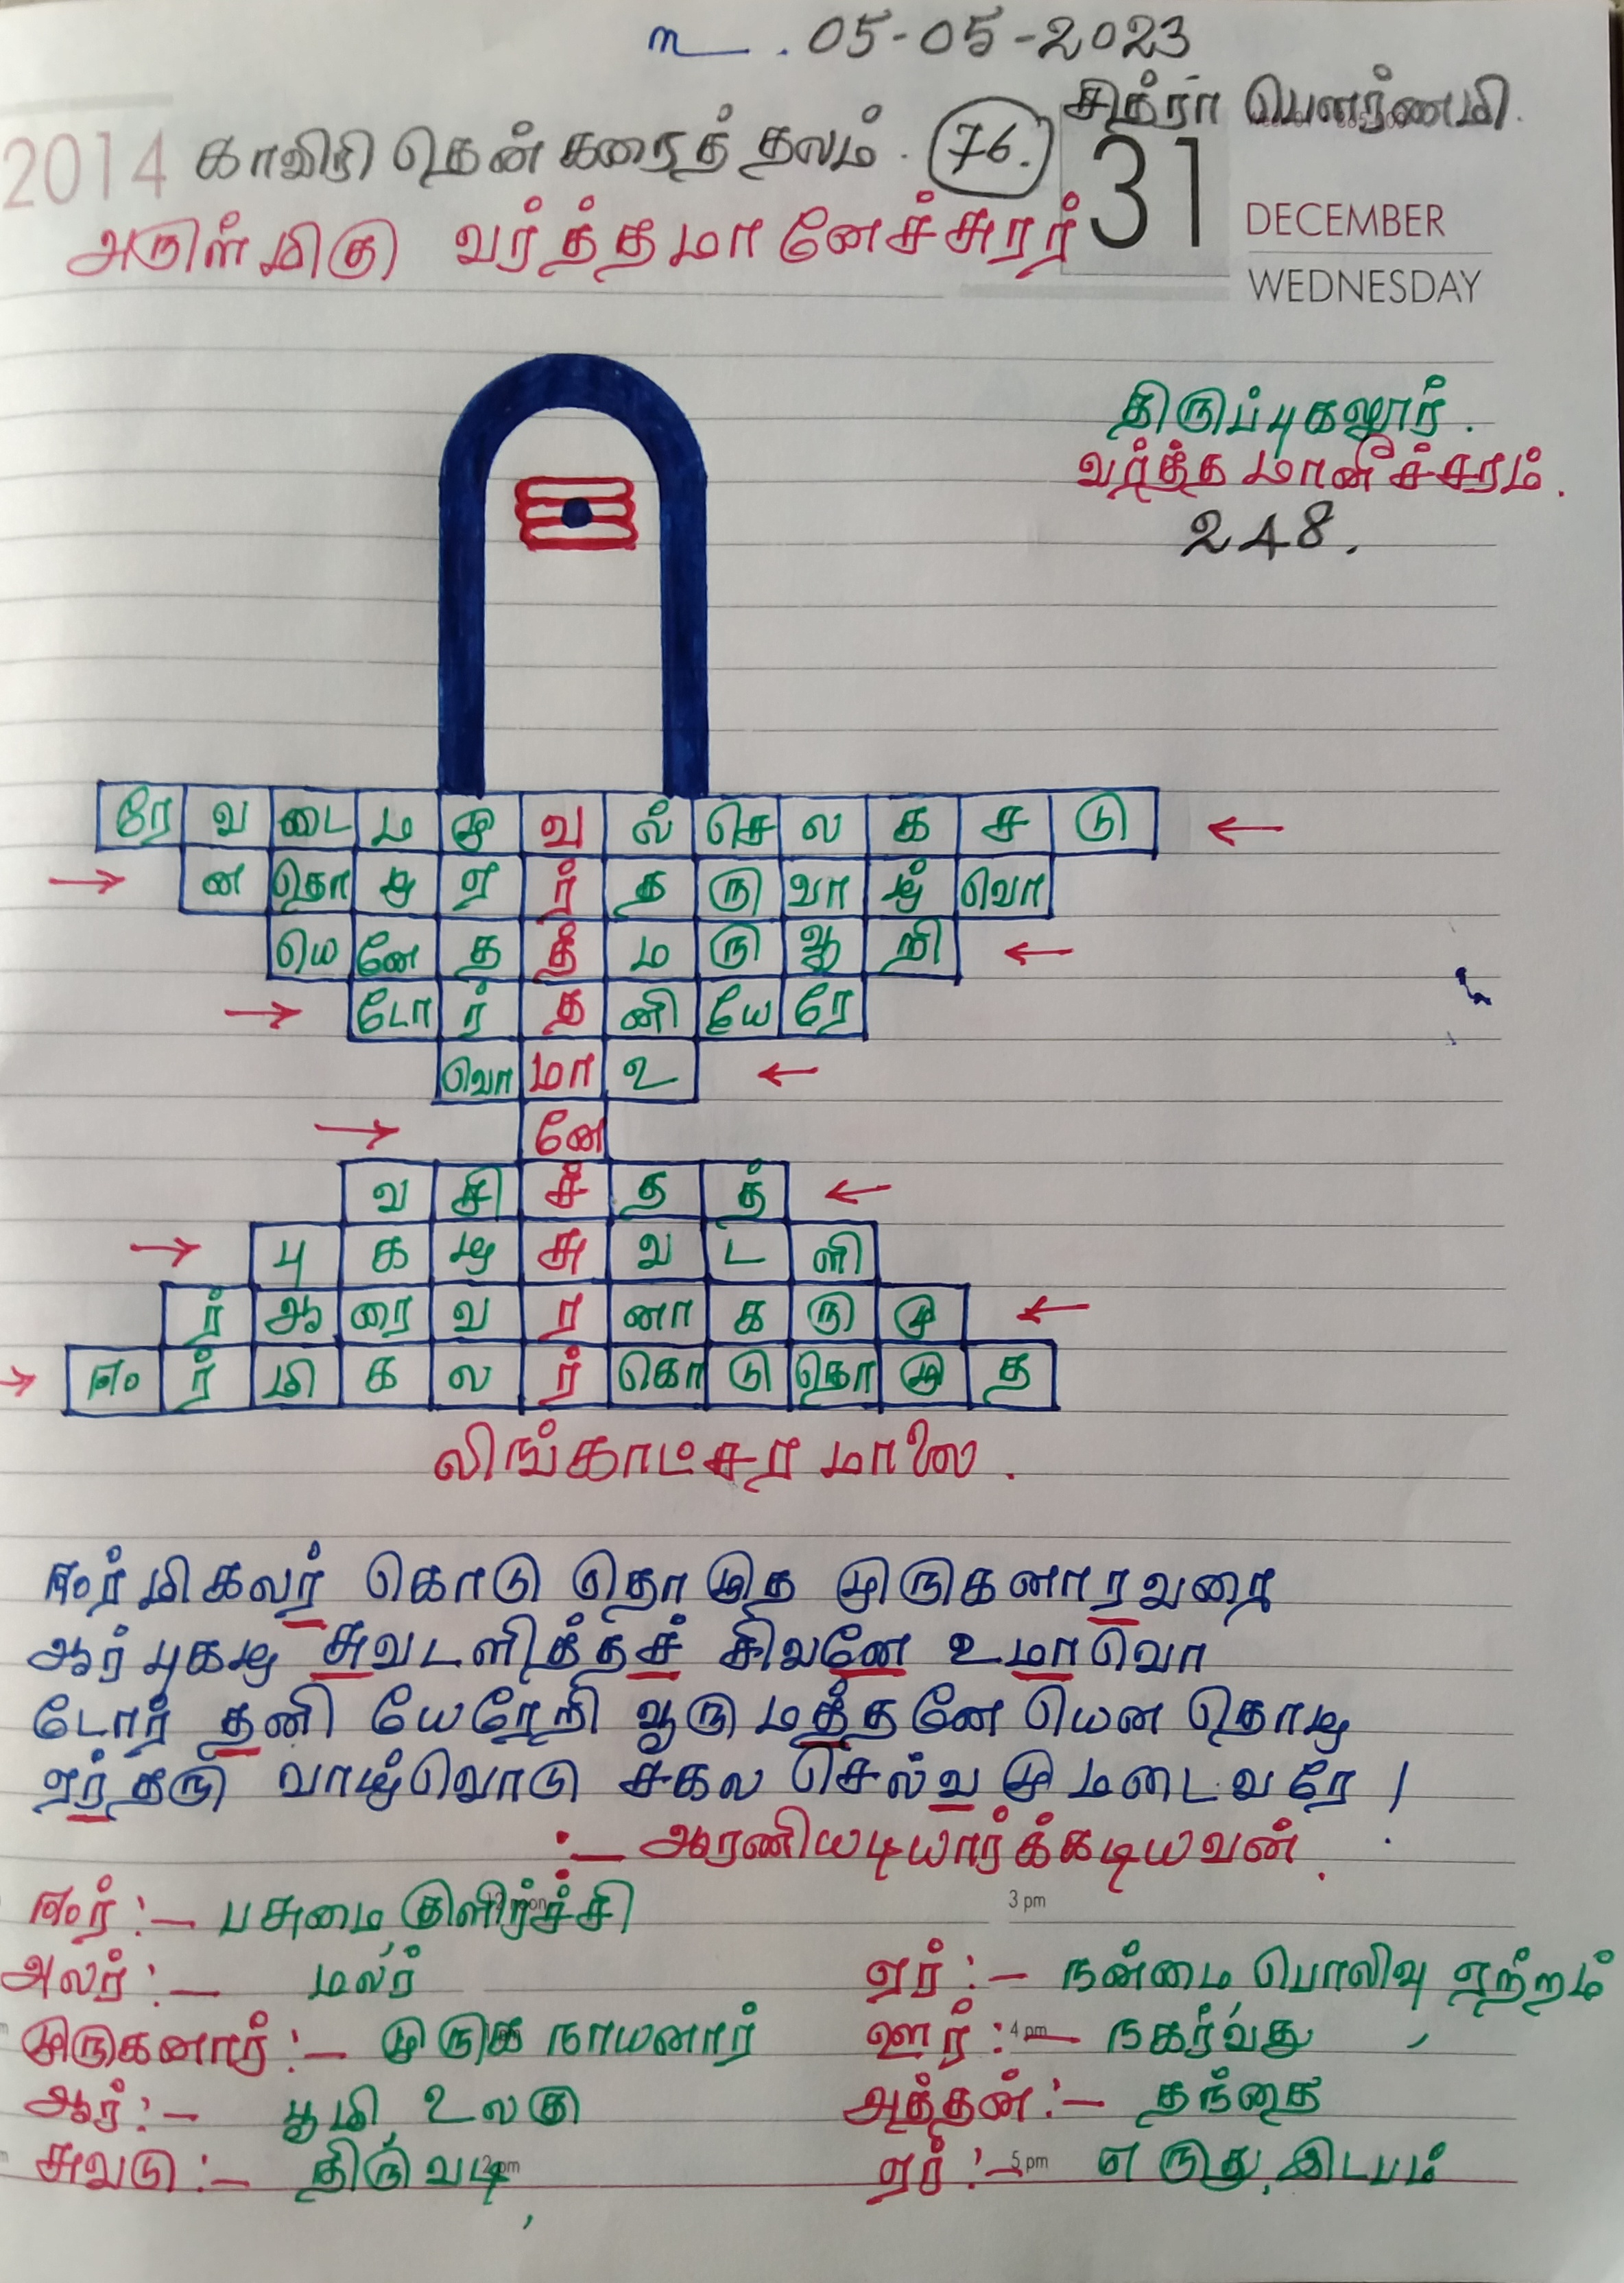 உ . 05-05-2023
சித்ரா பௌர்ணமி.
2014 காவிரி தென் கரைத் தலம். 76. 31
DECEMBER
WEDNESDAY
அருள்மிகு வர்த்தமானேச்சுரர்
திருப்புகலூர்.
வர்த்தமானீச்சரம்.
248.
ரே வ டை ம மு வ ல் செ ல க ச டு ←
→ ன தொ ழ ஏ ர் த ரு வா ழ் வொ
யெ னே த த் ம ரு ஆ றி ←
→ டோ ர் த னி யே ரே
வொ மா உ ←
→ னே
வ சி ச் த த் ←
→ பு க ழ சு வ ட ளி
ர் ஆ ரை வ ர னா க ரு மு ←
→ ஈ ர் மி க ல ர் கொ டு தொ ழு த
லிங்காட்சர மாலை .
ஈர் மிகலர் கொடு தொழுத முருகனாரவரை
ஆர் புகழ சுவடளித்தச் சிவனே உமாவொ
டோர் தனி யேரேறி ஆரு மத்தனே யென தொழ
ஏர்தரு வாழ்வொடு சகல செல்வ மு மடைவரே !
:– ஆரணியடியார்க்கடியவன்.
ஈர் :– பசுமை குளிர்ச்சி
3 pm
அலர் :– மலர்
ஏர் :– நன்மை பொலிவு ஏற்றம்
முருகனார் :– முருக நாயனார்
ஊர் : 4 pm – நகர்வது
ஆர் :– பூமி உலகு
அத்தன் :– தந்தை
சுவடு :– திருவடி 2 pm
ஏர் :– 5 pm எருது, இடபம்